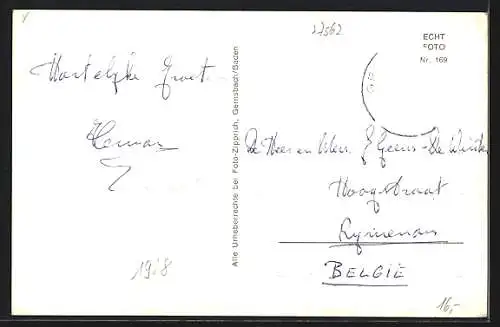 27562
ECHT
FOTO
Nr. 169
Hartelijke Groet
Herman
Alle Urheberrechte bei Foto-Zipprich, Gernsbach/Baden
De Heer en Mevr. Geens - De Winter
Hoogstraat
Rymenam
BELGIË
16,-